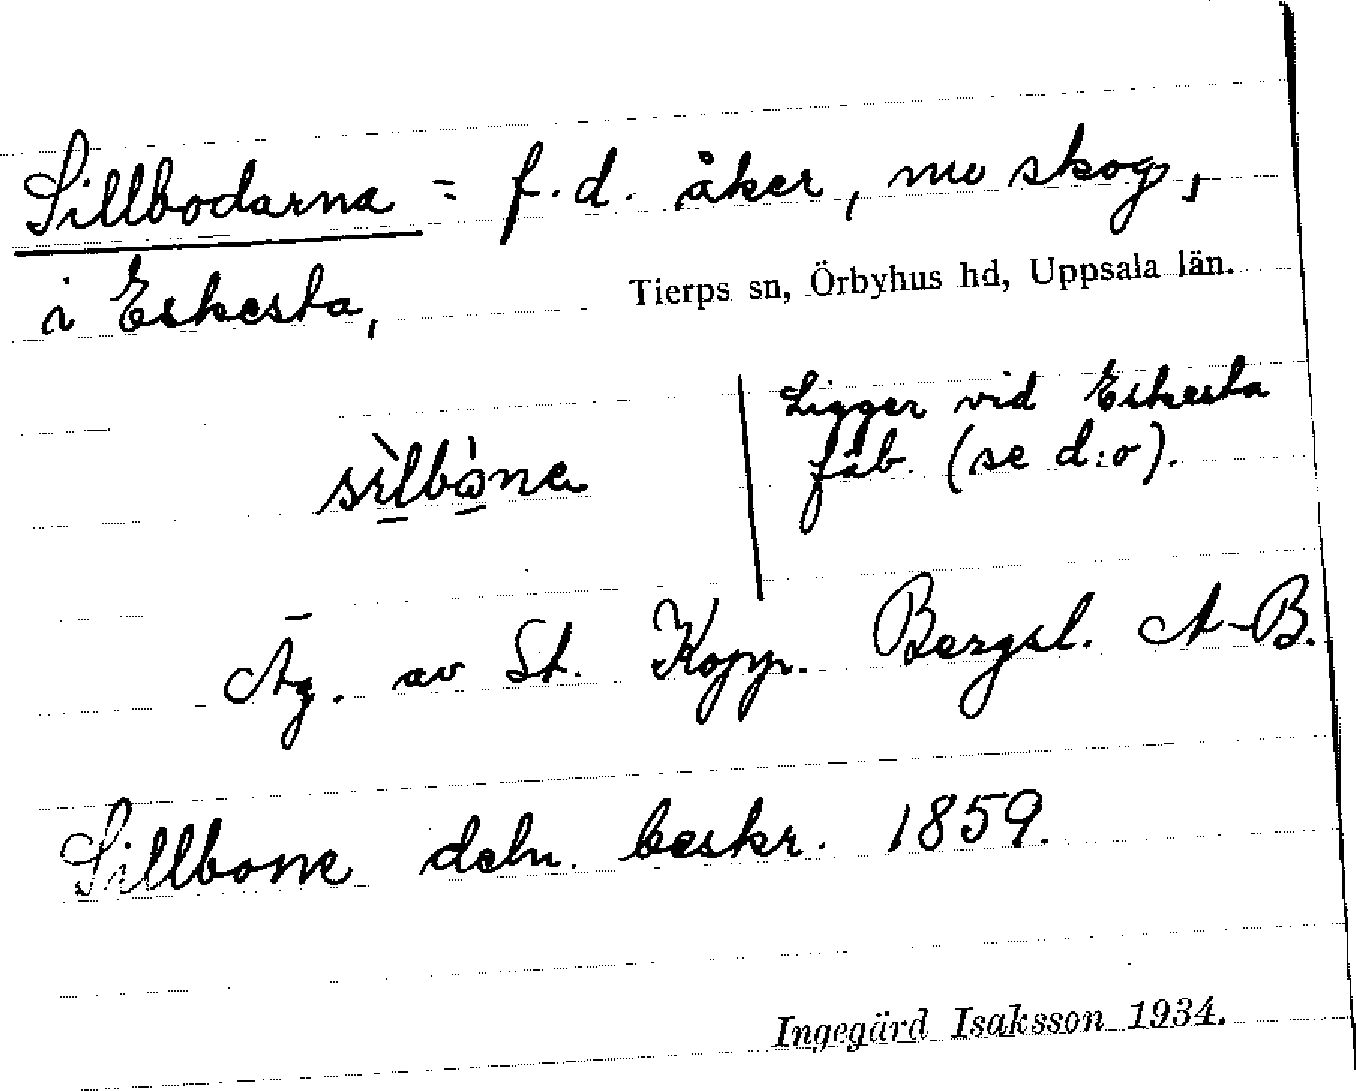 Sillbodarna = f.d. åker, nu skog,
i Eskesta,
Tierps sn, Örbyhus hd, Uppsala län.
Ligger vid Eskesta
fäb. (se d:o).
Äg. av St. Kopp. Bergsl. A-B.
Sillbone deln. beskr. 1859.
Ingegärd Isaksson 1934.